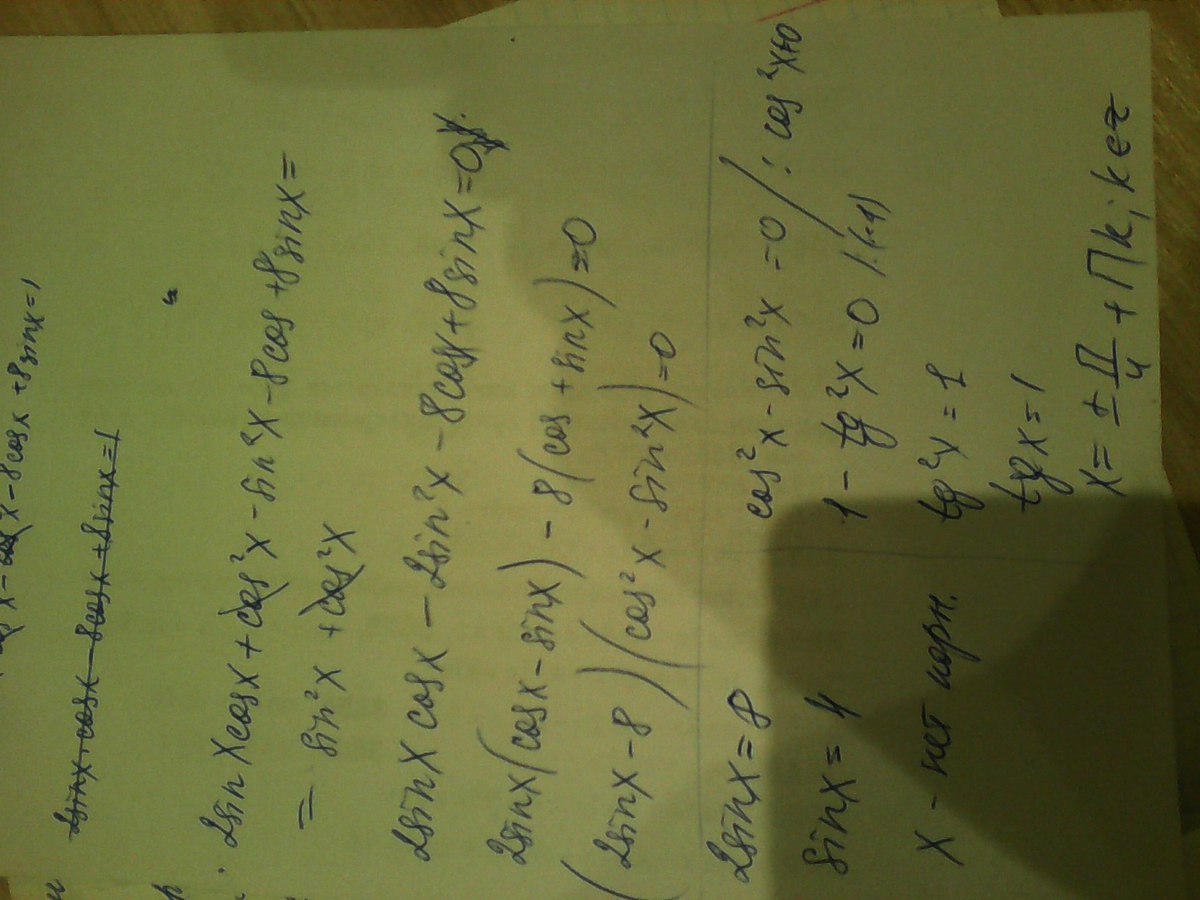 x - cos x - 8cosx + 8sinx = 1
2sinx + cosx - 8cosx + 8sinx = 1
2sinxcosx + cos²x - sin²x - 8cos + 8sinx =
= sin²x + cos²x
2sinx cosx - 2sin²x - 8cosx + 8sinx = 0
2sinx(cosx - sinx) - 8(cos + sinx) = 0
(2sinx - 8)(cos²x - sin²x) = 0
2sinx = 8
sinx = 4
x - нет корн.
cos²x - sin²x = 0 / : cos²x≠0
1 - tg²x = 0 /·(-1)
tg²x = 1
tgx = 1
x = ± П/4 + Пk; k∈z